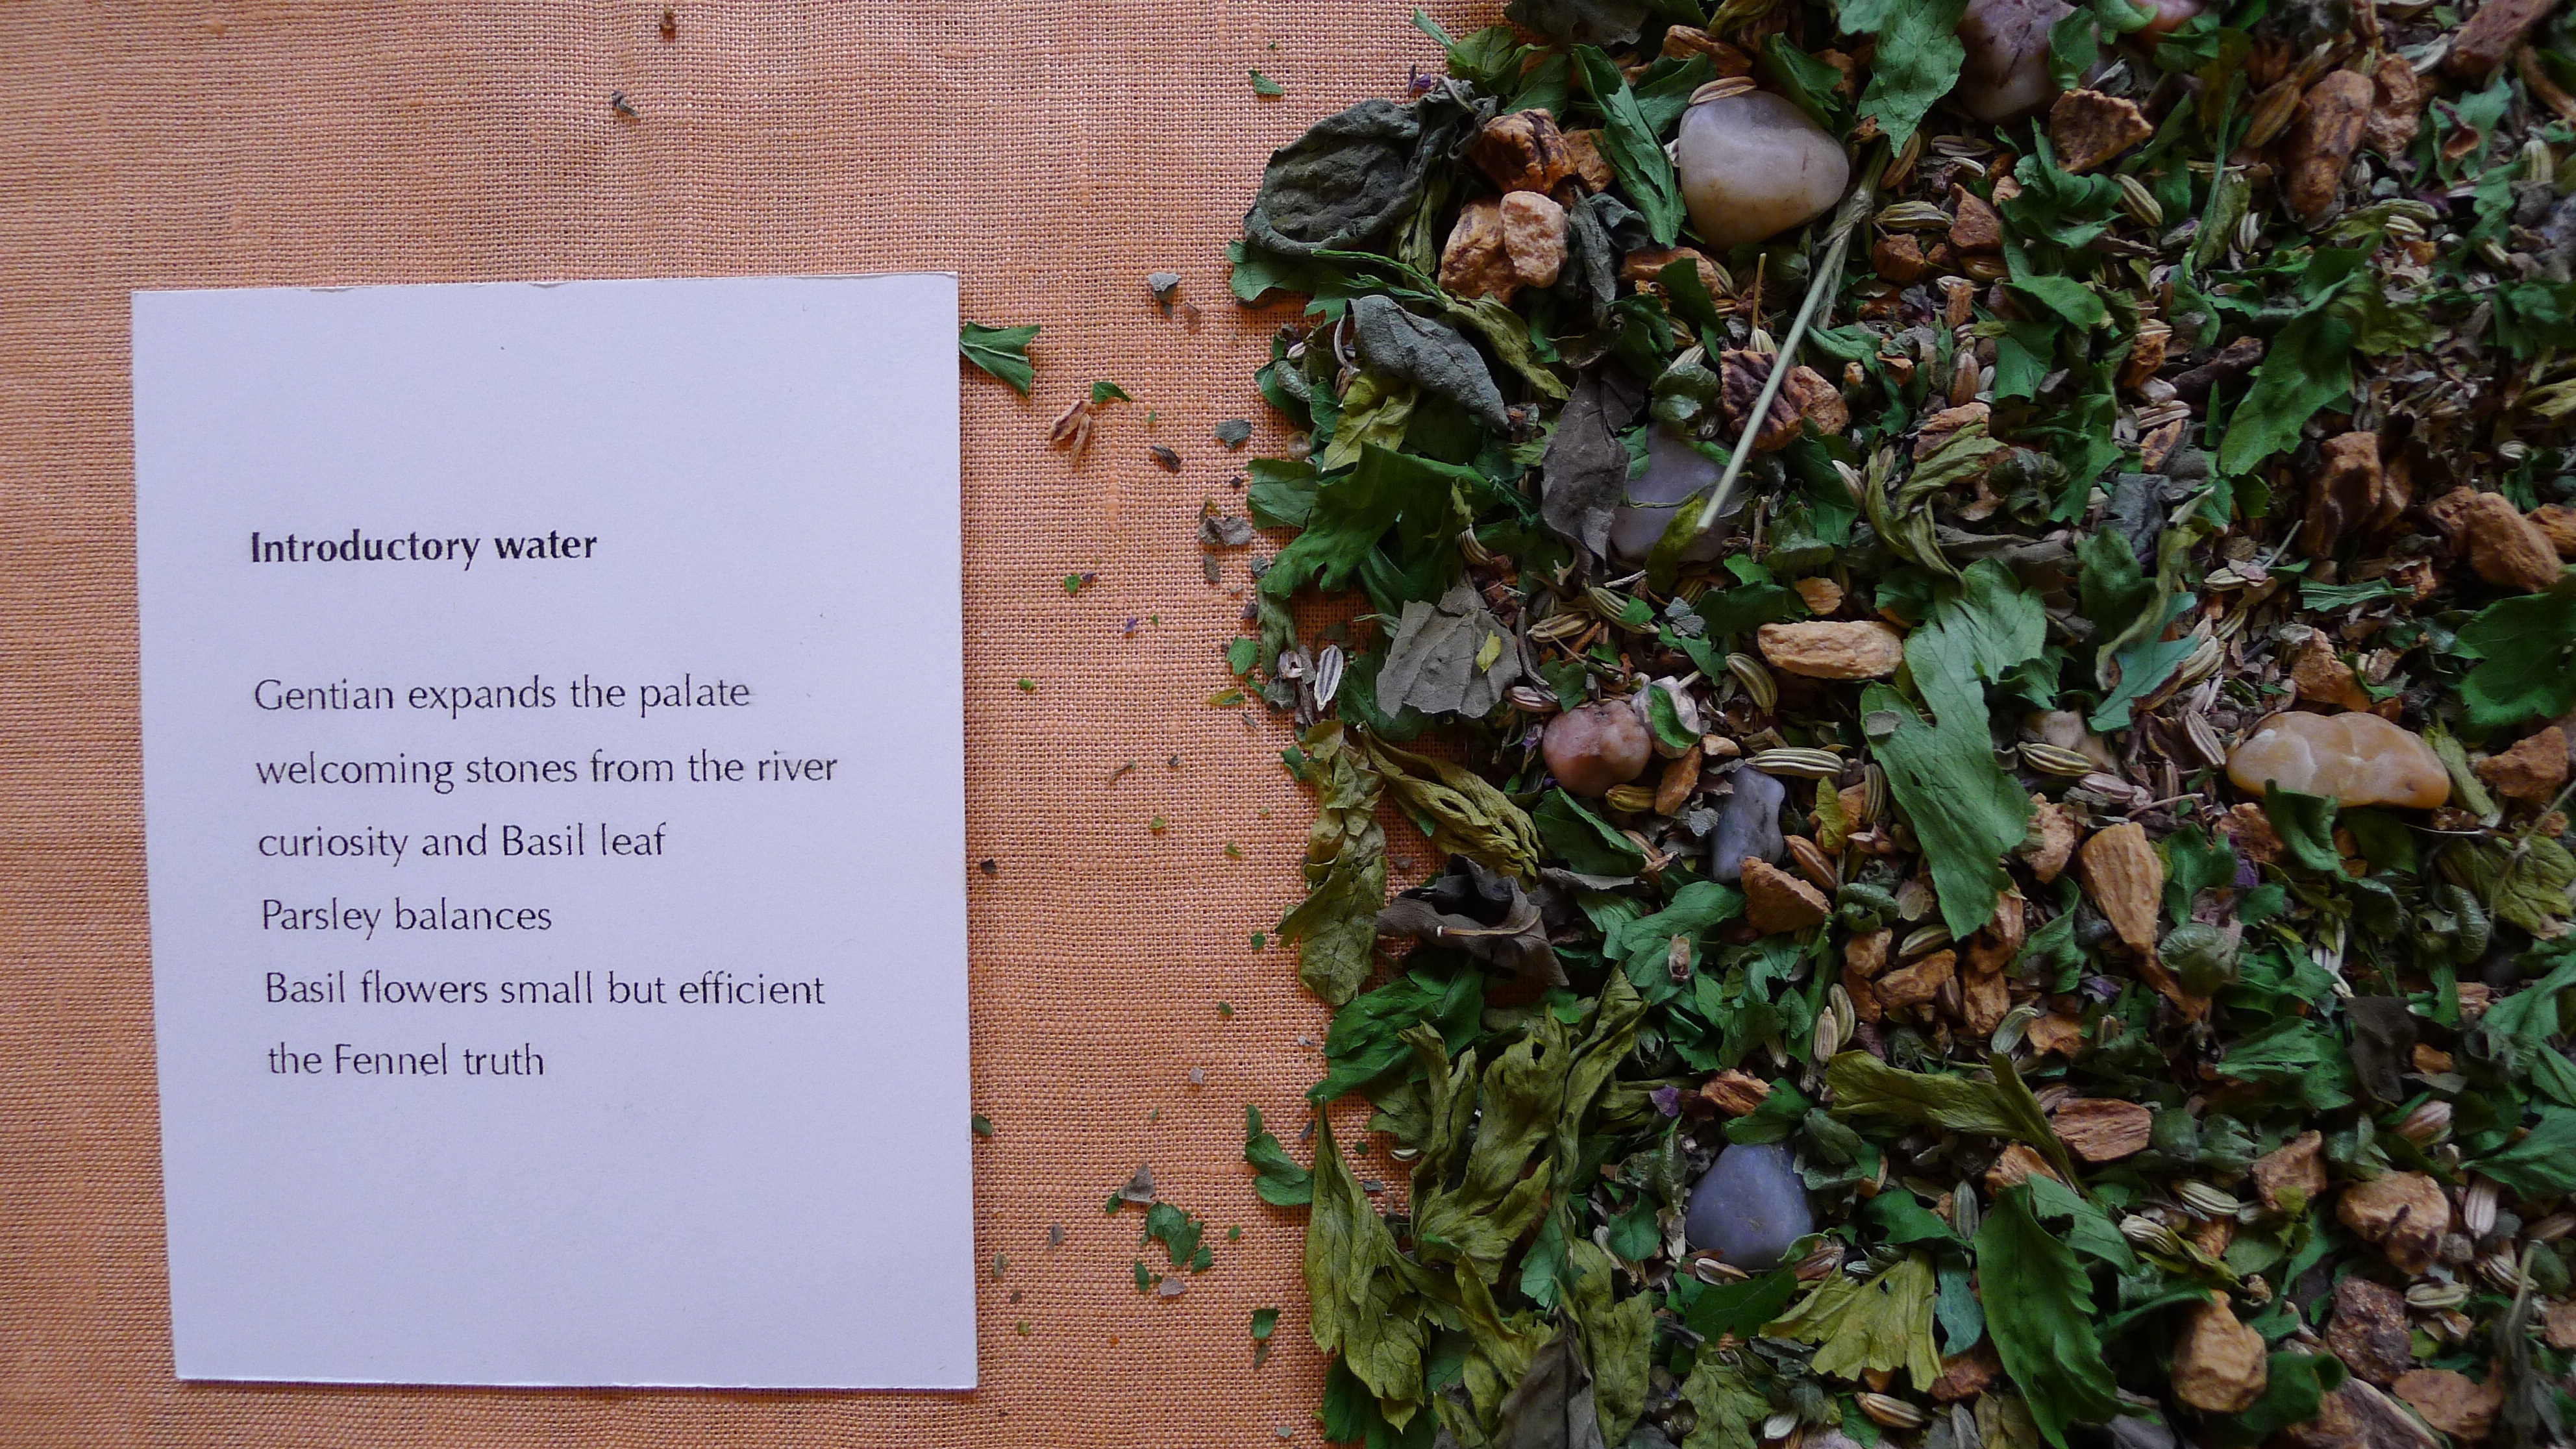 Introductory water
Gentian expands the palate
welcoming stones from the river
curiosity and Basil leaf
Parsley balances
Basil flowers small but efficient
the Fennel truth